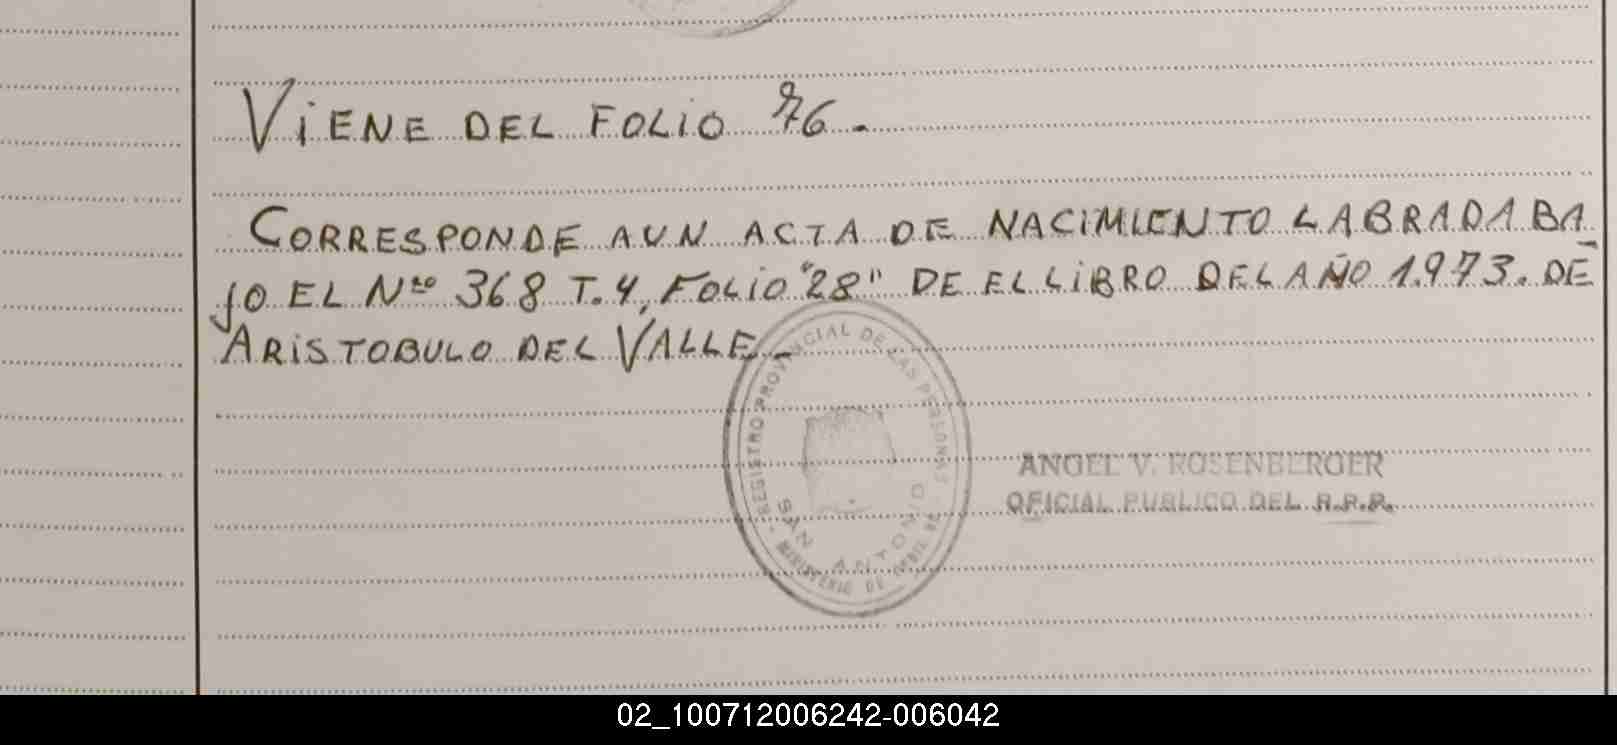 VIENE DEL FOLIO 76.
CORRESPONDE A UN ACTA DE NACIMIENTO LABRADA BA
JO EL Nro 368 T. 4, FOLIO "28" DE EL LIBRO DEL AÑO 1.973. DE
ARISTOBULO DEL VALLE.-
REGISTRO PROVINCIAL DE LAS PERSONAS
SAN ANTONIO
MINISTERIO DE
ANGEL V. ROSENBERGER
OFICIAL PUBLICO DEL R.P.P.
02_100712006242-006042